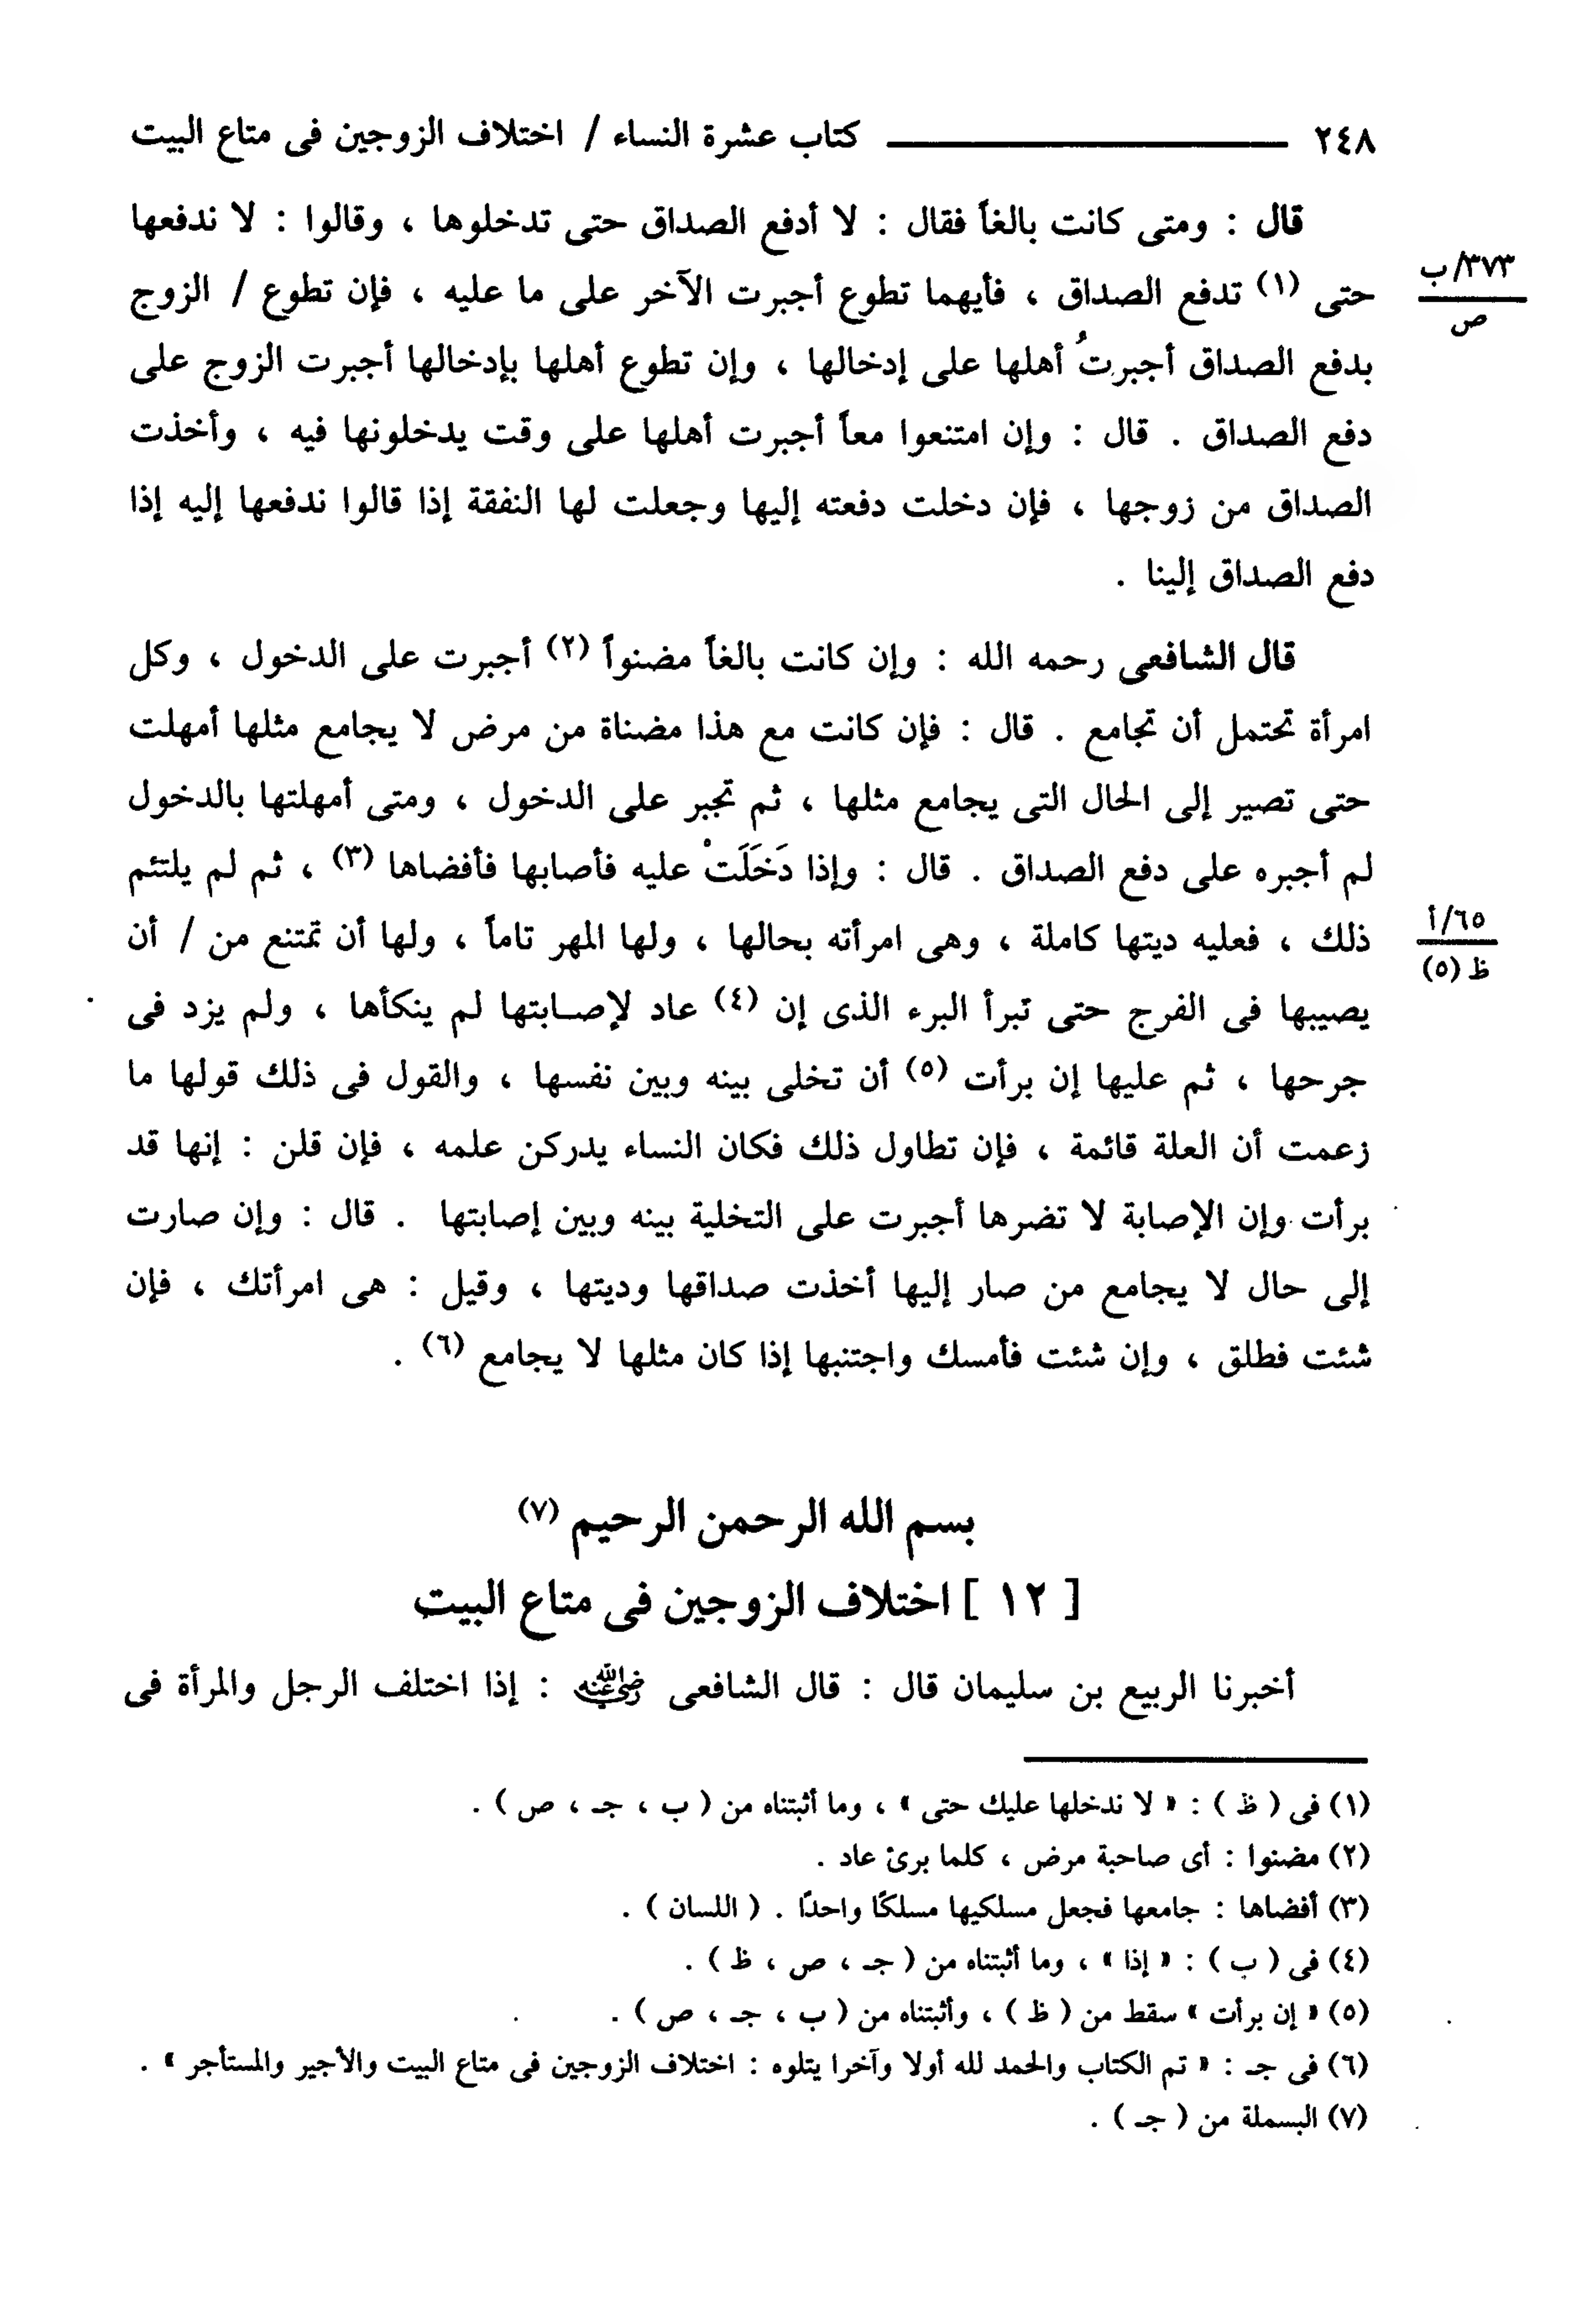 ٢٤٨ ——— كتاب عشرة النساء / اختلاف الزوجين فى متاع البيت
قال : ومتى كانت بالغاً فقال : لا أدفع الصداق حتى تدخلوها ، وقالوا : لا ندفعها
٣٧٣/ب
ص
حتى (١) تدفع الصداق ، فأيهما تطوع أجبرت الآخر على ما عليه ، فإن تطوع / الزوج
بدفع الصداق أجبرتُ أهلها على إدخالها ، وإن تطوع أهلها بإدخالها أجبرت الزوج على
دفع الصداق . قال : وإن امتنعوا معاً أجبرت أهلها على وقت يدخلونها فيه ، وأخذت
الصداق من زوجها ، فإن دخلت دفعته إليها وجعلت لها النفقة إذا قالوا ندفعها إليه إذا
دفع الصداق إلينا .
قال الشافعى رحمه الله : وإن كانت بالغاً مضنواً (٢) أجبرت على الدخول ، وكل
امرأة تحتمل أن تجامع . قال : فإن كانت مع هذا مضناة من مرض لا يجامع مثلها أمهلت
حتى تصير إلى الحال التى يجامع مثلها ، ثم تجبر على الدخول ، ومتى أمهلتها بالدخول
لم أجبره على دفع الصداق . قال : وإذا دَخَلَتْ عليه فأصابها فأفضاها (٣) ، ثم لم يلتئم
٦٥/أ
ظ (٥)
ذلك ، فعليه ديتها كاملة ، وهى امرأته بحالها ، ولها المهر تاماً ، ولها أن تمتنع من / أن
يصيبها فى الفرج حتى تبرأ البرء الذى إن (٤) عاد لإصـابتها لم ينكأها ، ولم يزد فى
جرحها ، ثم عليها إن برأت (٥) أن تخلى بينه وبين نفسها ، والقول فى ذلك قولها ما
زعمت أن العلة قائمة ، فإن تطاول ذلك فكان النساء يدركن علمه ، فإن قلن : إنها قد
برأت وإن الإصابة لا تضرها أجبرت على التخلية بينه وبين إصابتها . قال : وإن صارت
إلى حال لا يجامع من صار إليها أخذت صداقها وديتها ، وقيل : هى امرأتك ، فإن
شئت فطلق ، وإن شئت فأمسك واجتنبها إذا كان مثلها لا يجامع (٦) .
بسم الله الرحمن الرحيم (٧)
[ ١٢ ] اختلاف الزوجين فى متاع البيت
أخبرنا الربيع بن سليمان قال : قال الشافعى رضي الله عنه : إذا اختلف الرجل والمرأة فى
(١) فى ( ظ ) : « لا ندخلها عليك حتى » ، وما أثبتناه من ( ب ، جـ ، ص ) .
(٢) مضنوا : أى صاحبة مرض ، كلما برئ عاد .
(٣) أفضاها : جامعها فجعل مسلكيها مسلكًا واحدًا . ( اللسان ) .
(٤) فى ( ب ) : « إذا » ، وما أثبتناه من ( جـ ، ص ، ظ ) .
(٥) « إن برأت » سقط من ( ظ ) ، وأثبتناه من ( ب ، جـ ، ص ) .
(٦) فى جـ : « تم الكتاب والحمد لله أولا وآخرا يتلوه : اختلاف الزوجين فى متاع البيت والأجير والمستأجر » .
(٧) البسملة من ( جـ ) .